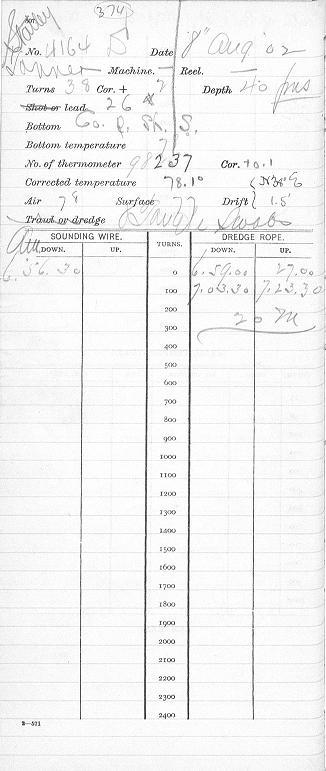 for 374
No. 4164 D Date "8" Aug '02
Tanner Machine. — Reel. —
Turns 38 Cor. + 2 Depth 40 fms
Shot or lead 26
Bottom Co. S. Sh. S.
Bottom temperature
No. of thermometer 98237 Cor. +0.1
Corrected temperature 78.1°
Air 79 Surface 77 Drift 1.5'
Trawl or dredge Swabs
SOUNDING WIRE. TURNS. DREDGE ROPE.
DOWN. UP. DOWN. UP.
6.56.30 0 6.59.00 27.00
100 7.03.30 7.23.30
200 20 M
300
400
500
600
700
800
900
1000
1100
1200
1300
1400
1500
1600
1700
1800
1900
2000
2100
2200
2300
2400
2—571